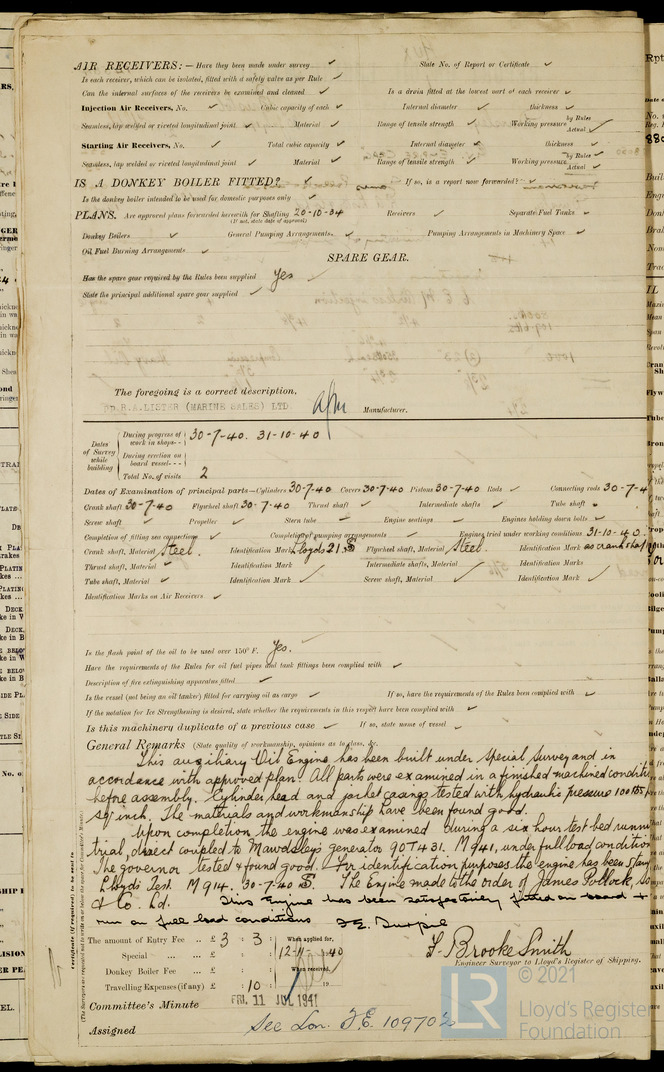 AIR RECEIVERS:— Have they been made under survey ✓ State No. of Report or Certificate ✓
Is each receiver, which can be isolated, fitted with a safety valve as per Rule ✓
Can the internal surfaces of the receivers be examined and cleaned ✓ Is a drain fitted at the lowest part of each receiver ✓
Injection Air Receivers, No. ✓ Cubic capacity of each ✓ Internal diameter ✓ thickness ✓
Seamless, lap welded or riveted longitudinal joint ✓ Material ✓ Range of tensile strength ✓ Working pressure by Rules Actual ✓
Starting Air Receivers, No. ✓ Total cubic capacity ✓ Internal diameter ✓ thickness ✓
Seamless, lap welded or riveted longitudinal joint ✓ Material ✓ Range of tensile strength ✓ Working pressure by Rules Actual ✓
IS A DONKEY BOILER FITTED? ✓ If so, is a report now forwarded? ✓
Is the donkey boiler intended to be used for domestic purposes only ✓
PLANS. Are approved plans forwarded herewith for Shafting 20-10-34 Receivers ✓ Separate Fuel Tanks ✓
(If not, state date of approval)
Donkey Boilers ✓ General Pumping Arrangements ✓ Pumping Arrangements in Machinery Space ✓
Oil Fuel Burning Arrangements ✓
SPARE GEAR.
Has the spare gear required by the Rules been supplied Yes
State the principal additional spare gear supplied ✓
The foregoing is a correct description,
R.A. LISTER (MARINE SALES) LTD Manufacturer.
Dates of Survey while building
During progress of work in shops-- 30-7-40. 31-10-40
During erection on board vessel---
Total No. of visits 2
Dates of Examination of principal parts—Cylinders 30-7-40 Covers 30-7-40 Pistons 30-7-40 Rods ✓ Connecting rods 30-7-4
Crank shaft 30-7-40 Flywheel shaft 30-7-40 Thrust shaft ✓ Intermediate shafts ✓ Tube shaft ✓
Screw shaft ✓ Propeller ✓ Stern tube ✓ Engine seatings ✓ Engines holding down bolts ✓
Completion of fitting sea connections ✓ Completion of pumping arrangements ✓ Engines tried under working conditions 31-10-40
Crank shaft, Material Steel. Identification Mark Lloyds 21 Flywheel shaft, Material Steel. Identification Mark as crankshaf
Thrust shaft, Material ✓ Identification Mark ✓ Intermediate shafts, Material ✓ Identification Marks
Tube shaft, Material ✓ Identification Mark ✓ Screw shaft, Material ✓ Identification Mark ✓
Identification Marks on Air Receivers ✓
Is the flash point of the oil to be used over 150° F. Yes.
Have the requirements of the Rules for oil fuel pipes and tank fittings been complied with ✓
Description of fire extinguishing apparatus fitted ✓
Is the vessel (not being an oil tanker) fitted for carrying oil as cargo ✓ If so, have the requirements of the Rules been complied with ✓
If the notation for Ice Strengthening is desired, state whether the requirements in this respect have been complied with ✓
Is this machinery duplicate of a previous case ✓ If so, state name of vessel ✓
General Remarks (State quality of workmanship, opinions as to class, &c.
This auxiliary Oil Engine has been built under special survey and in
accordance with approved plan. All parts were examined in a finished machined conditi
before assembly. Cylinder head and jacket casings tested with hydraulic pressure 100 lbs
sq inch. The materials and workmanship have been found good.
Upon completion the engine was examined during a six hour test bed runni
trial, direct coupled to Mawdsley's generator 90T431. M941, under full load condition
The governor tested & found good. For identification purposes the engine has been stam
Lloyds Test M914. 30-7-40 The Engine made to the order of James Pollock, So
& Co. Ld. This Engine has been satisfactorily fitted on board +
run on full load conditions
The amount of Entry Fee .. £ 3 : 3 : When applied for,
Special ... ... £ : : 12-11-40
Donkey Boiler Fee ... £ : : When received,
Travelling Expenses (if any) £ : 10 : 19
F. Brooke Smith
Engineer Surveyor to Lloyd's Register of Shipping.
Committee's Minute FRI. 11 JUL 1941
Assigned See Lon. F.E. 109702
© 2021
LR
Lloyd's Register
Foundation